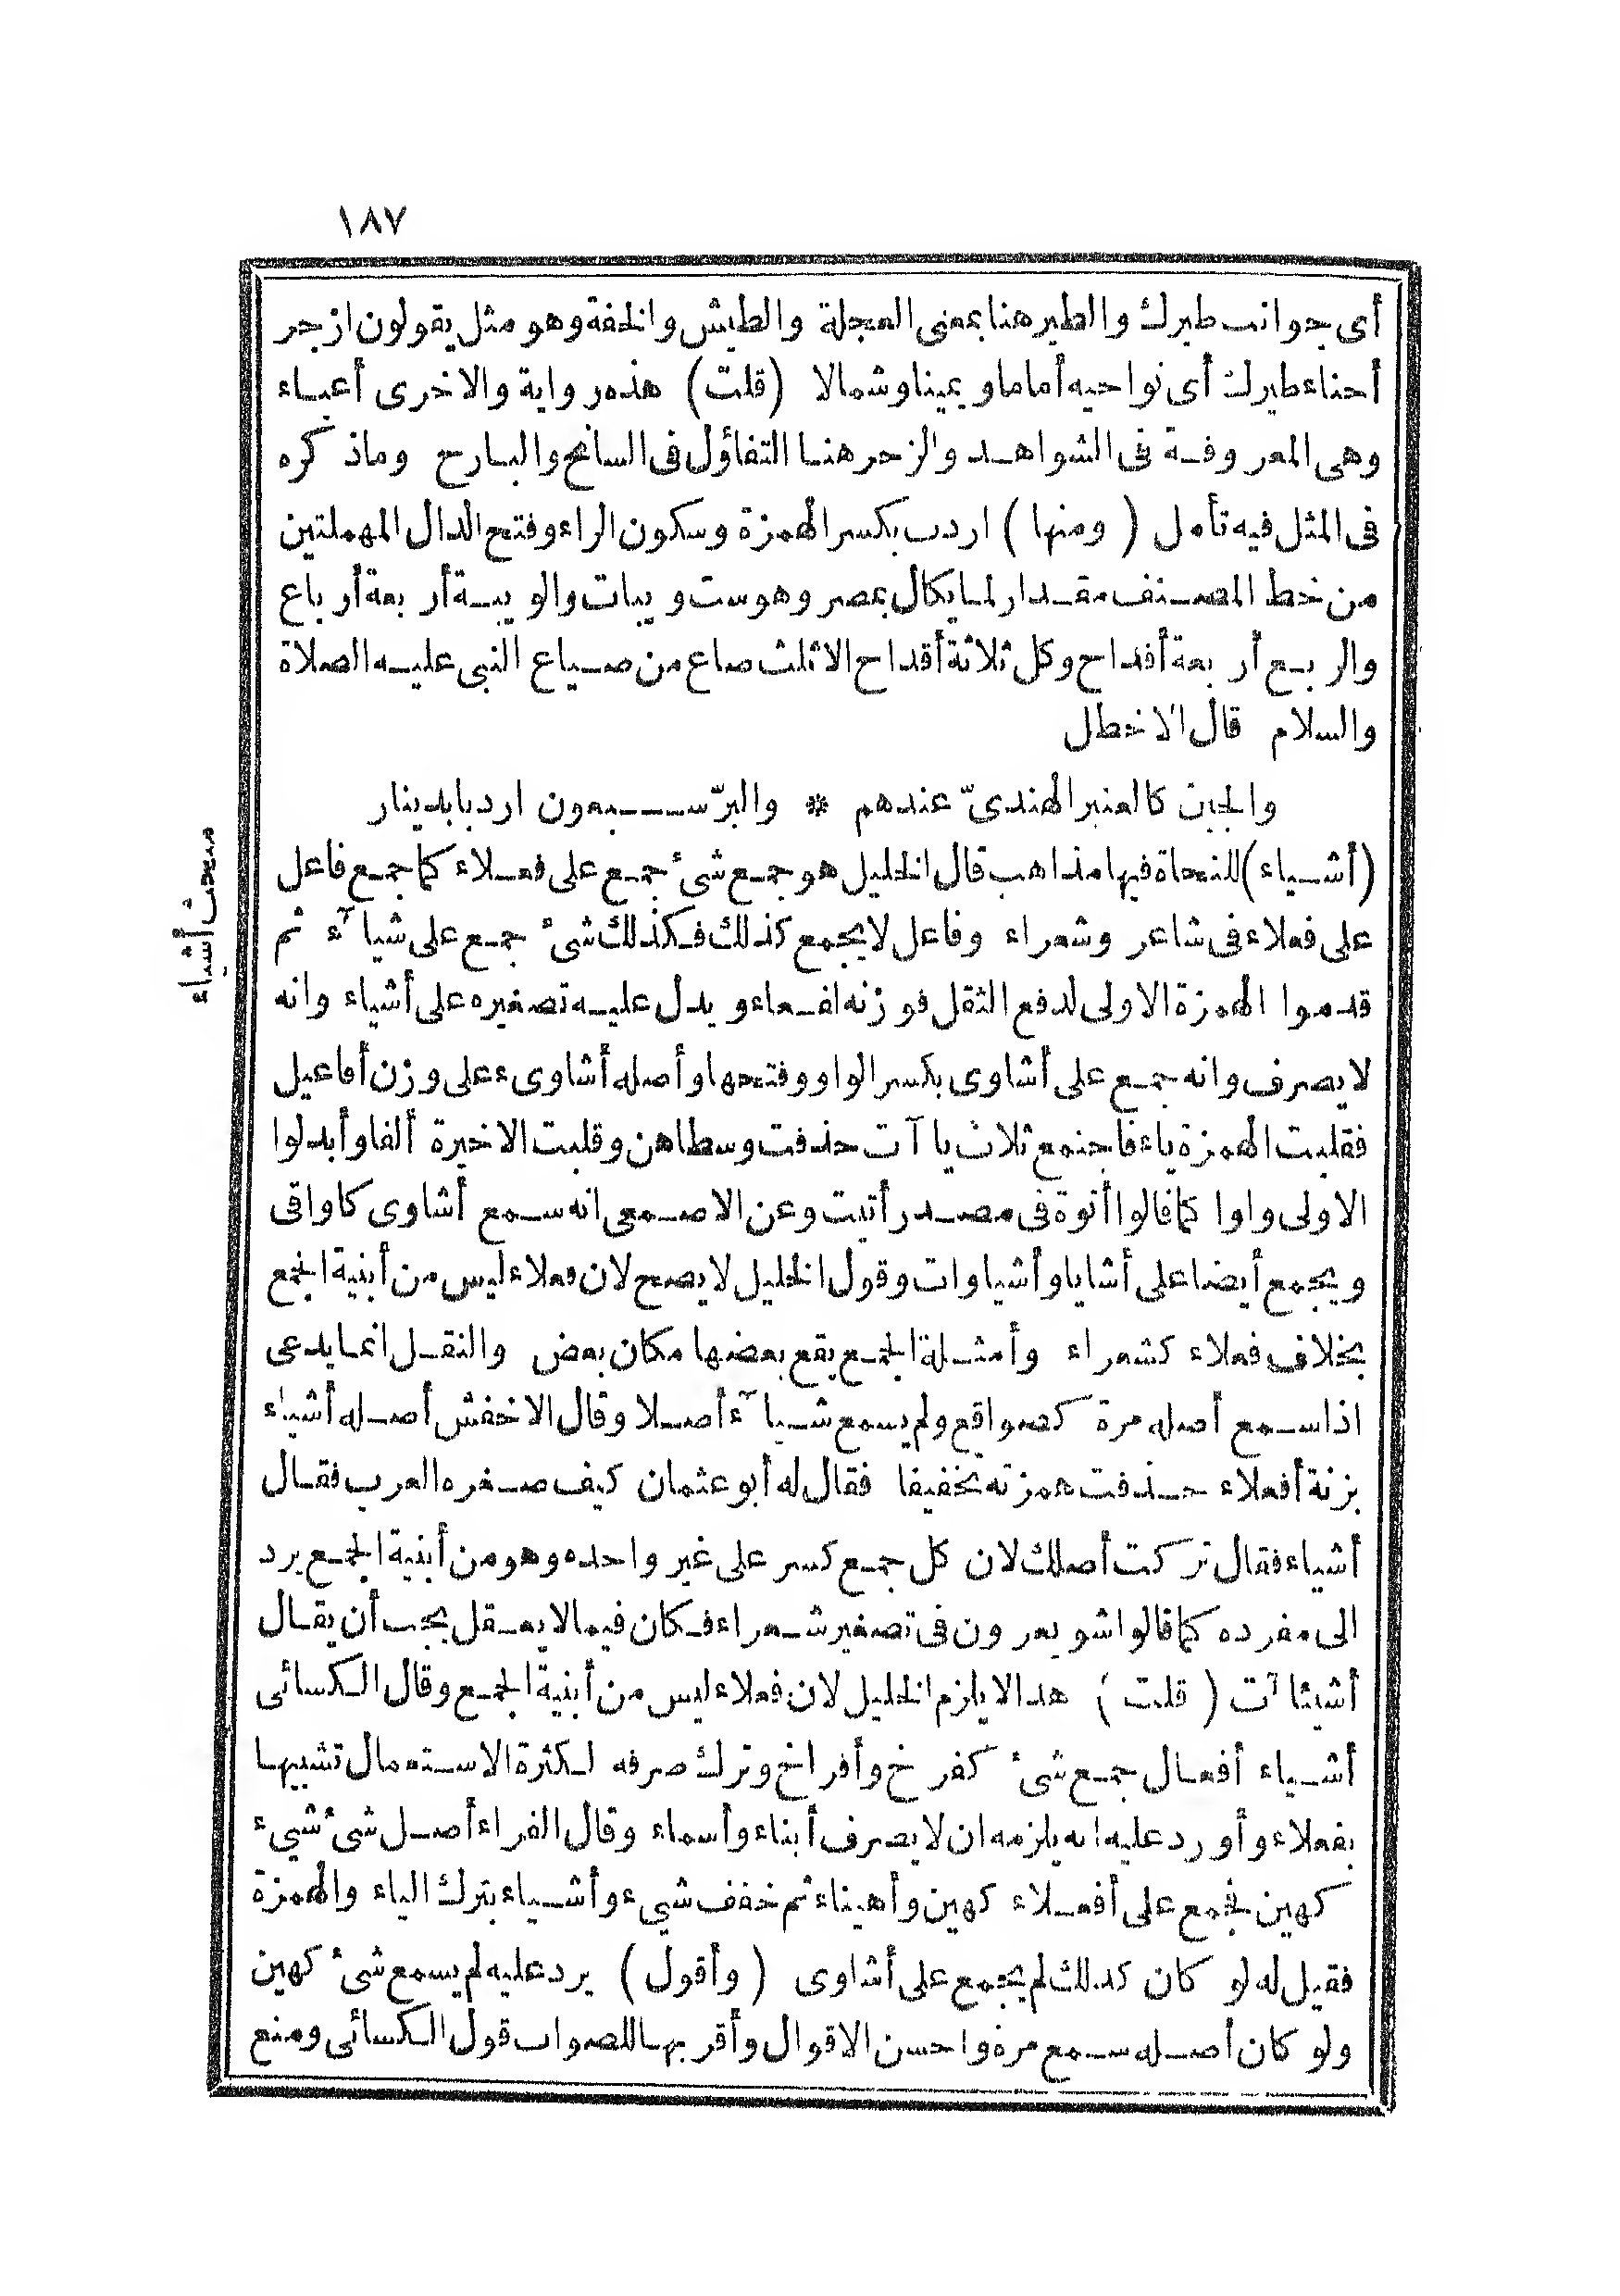 ١٨٧
أى جوانب طيرك والطير هنا بمعنى العجلة والطيش والخفة وهو مثل يقولون ازجر
أحناء طيرك أى نواحيه أماما ويمينا وشمالا (قلت) هذه رواية والاخرى أعباء
وهى المعروفة فى الشواهد والزجر هنا التفاؤل فى السانح والبارح وماذكره
فى المثل فيه تأمل (ومنها) اردب بكسر الهمزة وسكون الراء وفتح الدال المهملتين
من خط المصنف مقدار لما يكال بمصر وهو ست ويبات والويبة أربعة أرباع
والربع أربعة أقداح وكل ثلاثة أقداح الاثلث صاع من صياع النبى عليه الصلاة
والسلام قال الاخطل
والجبن كالعنبر الهندىّ عندهم * والبرّ سبعون اردبا بدينار
(أشياء) للنحاة فيها مذاهب قال الخليل هو جمع شئ جمع على فعلاء كما جمع فاعل
على فعلاء فى شاعر وشعراء وفاعل لا يجمع كذلك فكذلك شئ جمع على شيآء ثم
قدموا الهمزة الاولى لدفع الثقل فوزنه لفعاء ويدل عليه تصغيره على أشياء وانه
لا يصرف وانه جمع على أشاوى بكسر الواو وفتحها وأصله أشاوىء على وزن أفاعيل
فقلبت الهمزة ياء فاجتمع ثلاث يا آت حذفت وسطاهن وقلبت الاخيرة ألفا وأبدلوا
الاولى واوا كما قالوا أتوة فى مصدر أتيت وعن الاصمعى انه سمع أشاوى كاواقى
ويجمع أيضا على أشايا وأشياوات وقول الخليل لا يصح لان فعلاء ليس من أبنية الجمع
بخلاف فعلاء كشعراء وأمثلة الجمع يقع بعضها مكان بعض والنقل انما يدعى
اذا سمع أصله مرة كصواقع ولم يسمع شيآء أصلا وقال الاخفش أصله أشيئاء
بزنة أفعلاء حذفت همزته تخفيفا فقال له أبو عثمان كيف صغره العرب فقال
أشياء فقال تركت أصلك لان كل جمع كسر على غير واحده وهو من أبنية الجمع يرد
الى مفرده كما قالوا شويعرون فى تصغير شعراء فكان فيما لا يعقل يجب أن يقال
أشيئا آت (قلت) هذا لا يلزم الخليل لان فعلاء ليس من أبنية الجمع وقال الكسائى
أشياء أفعال جمع شئ كفرخ وأفراخ وترك صرفه لكثرة الاستعمال تشبيها
بفعلاء وأورد عليه انه يلزمه ان لا يصرف أبناء وأسماء وقال الفراء أصل شئ شيىء
كهين فجمع على أفعلاء كهين وأهيناء ثم خفف شيىء وأشياء بترك الياء والهمزة
فقيل له لو كان كذلك لم يجمع على أشاوى (وأقول) يرد عليه لم يسمع شئ كهين
ولو كان أصله سمع مرة واحسن الاقوال وأقربها للصواب قول الكسائى ومنع
مبحث أشياء